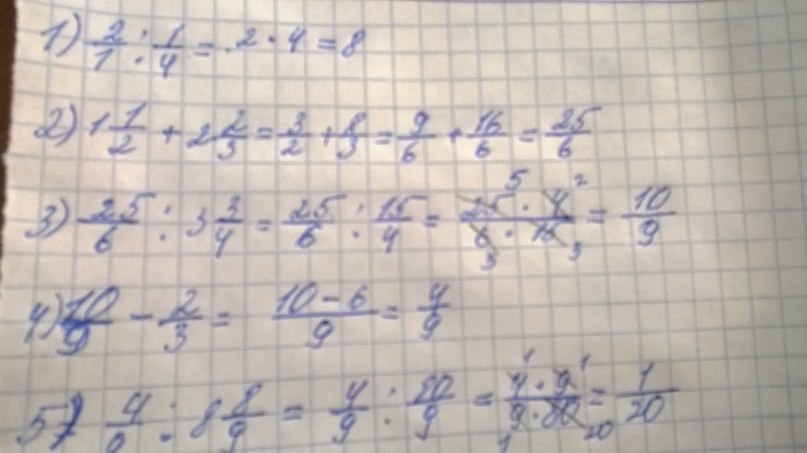 1) 2/1 : 1/4 = 2 · 4 = 8
2) 1 1/2 + 2 2/3 = 3/2 + 8/3 = 9/6 + 16/6 = 25/6
3) 25/6 : 3 3/4 = 25/6 : 15/4 = 25 5 · 4 2 / 6 3 · 15 3 = 10/9
4) 10/9 - 2/3 = 10 - 6 / 9 = 4/9
5) 4/9 : 8 8/9 = 4/9 : 80/9 = 4 1 · 9 1 / 9 1 · 80 20 = 1/20